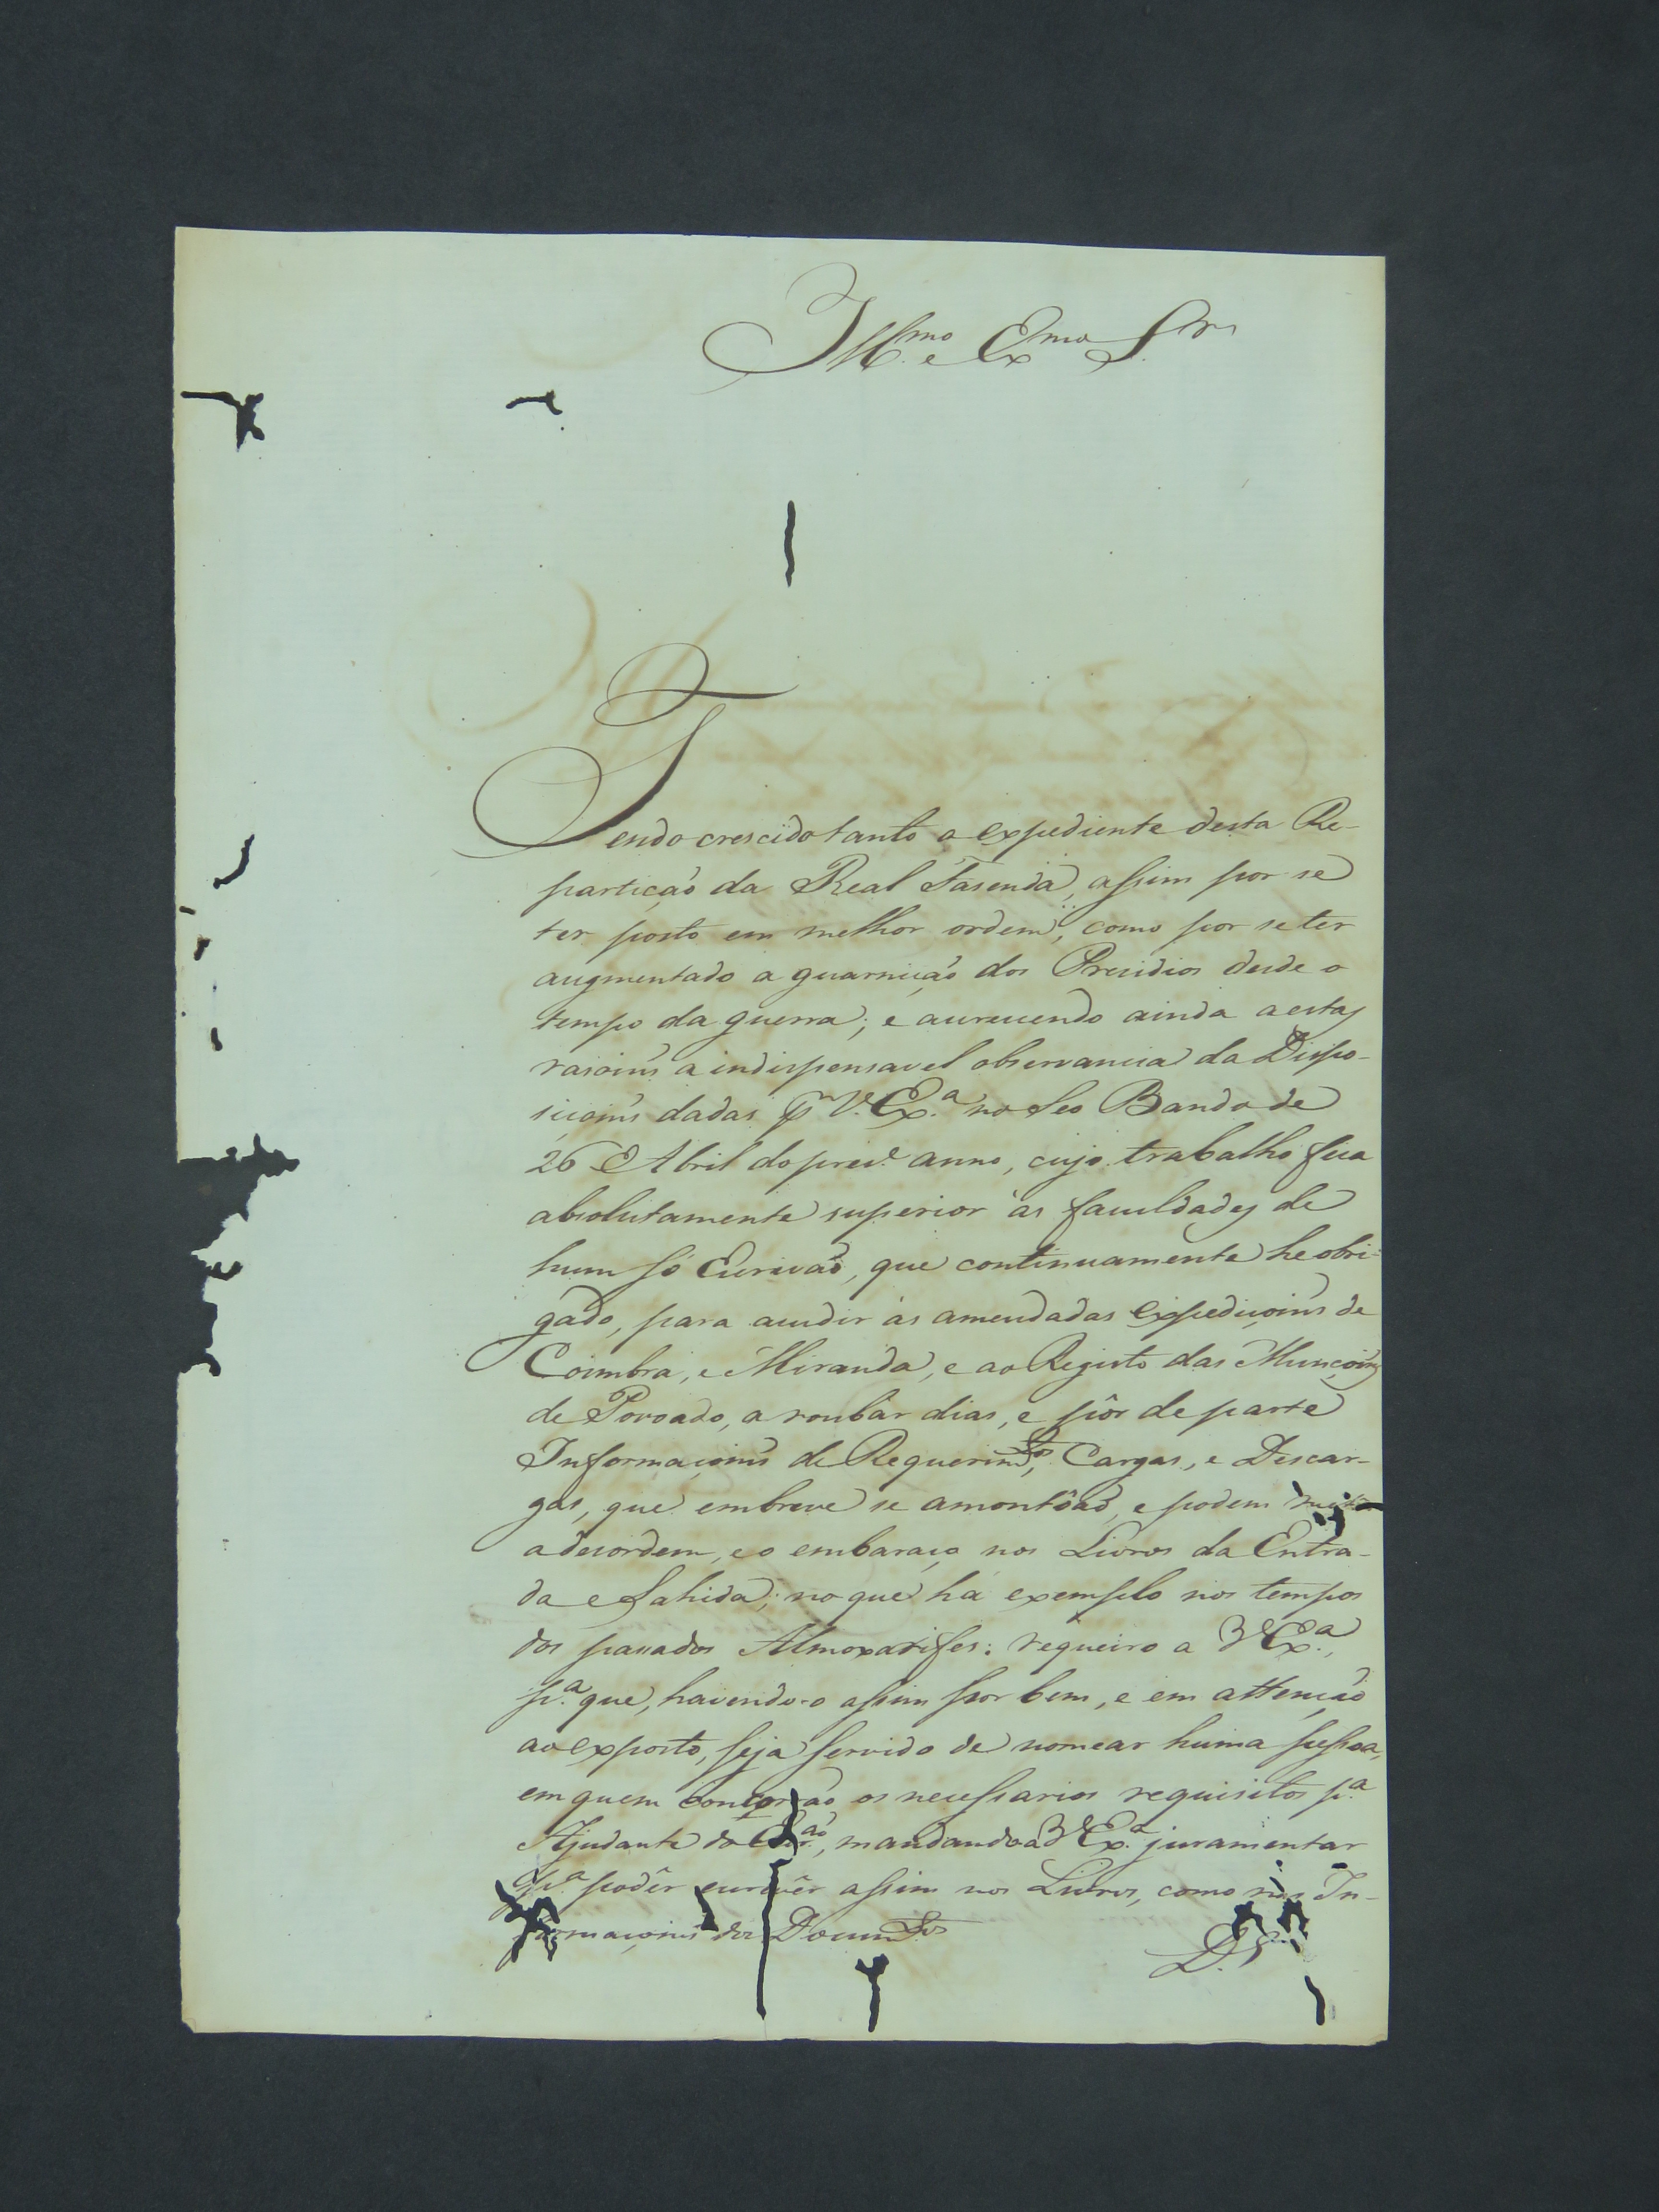 Ill.mo e Ex.mo S.r
Tendo crescido tanto o expediente desta Re-
partição da Real Fasenda, assim por se
ter posto em melhor ordem, como por se ter
augmentado a guarnição dos Presidios desde o
tempo da guerra; e acrecendo ainda a estas
rasoins a indispensavel observancia da Dispo-
siçoins dadas p.r V. Ex.a no Seo Bando de
26 Abril do prez.e anno, cujo trabalho fica
absolutamente superior ás faculdades de
hum só Escrivaõ, que continuamente he obri-
gado, para acudir ás amendadas expediçoins de
Coimbra, e Miranda, e ao Registo das Munçoins
de Povoado, a roubár dias, e pôr de parte
Informaçoins de Requerim.tos, Cargas, e Descar-
gas, que em breve se amontôaõ, e podem
a desordem, e o embaraço nos Livros da Entra-
da e Sahida; no que há exemplo nos tempos
dos passados Almoxarifes: requeiro a V.Ex.a,
p.a que, havendo-o assim por bem, e em attençaõ
ao exposto, seja servido de nomear huma pessoa,
em quem concorraõ os necessarios requisitos p.a
Ajudante do Escr.aõ, mandando-a V.Ex.a juramentar
p.a podêr escrevêr assim nos Livros, como nas In-
formaçoins dos Docum.tos
D.s